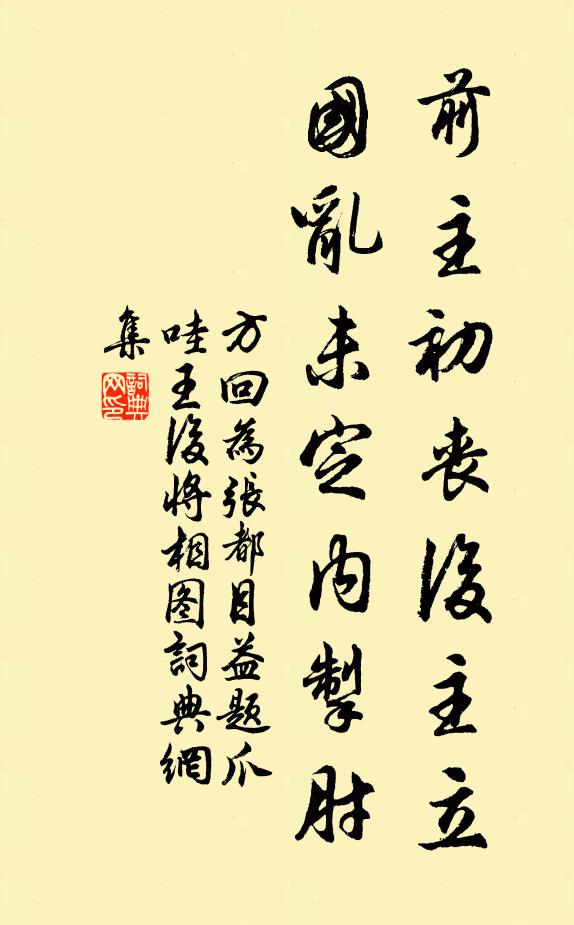 前主初喪後主立
國亂未定內掣肘
方回為張都目益題爪
哇王後將相圖詞典網
集
詞典
网印